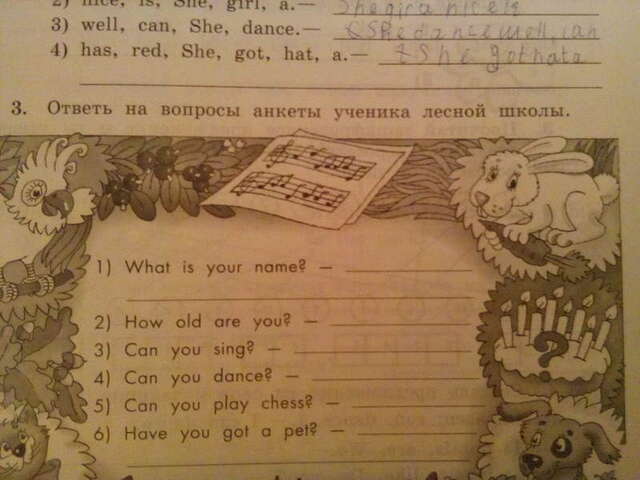 2) nice, is, She, girl, a.—
3) well, can, She, dance.— She dance well, can
4) has, red, She, got, hat, a.— She got hat a
3. Ответь на вопросы анкеты ученика лесной школы.
1) What is your name? —
2) How old are you? —
3) Can you sing? —
4) Can you dance? —
5) Can you play chess? —
6) Have you got a pet? —
?